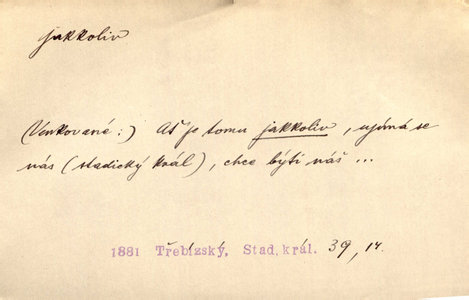 jakkoliv
(Venkované:) Ať je tomu jakkoliv, ujímá se
nás (stadický král), chce býti náš ...
1881 Třebízský, Stad. král. 39, 14.